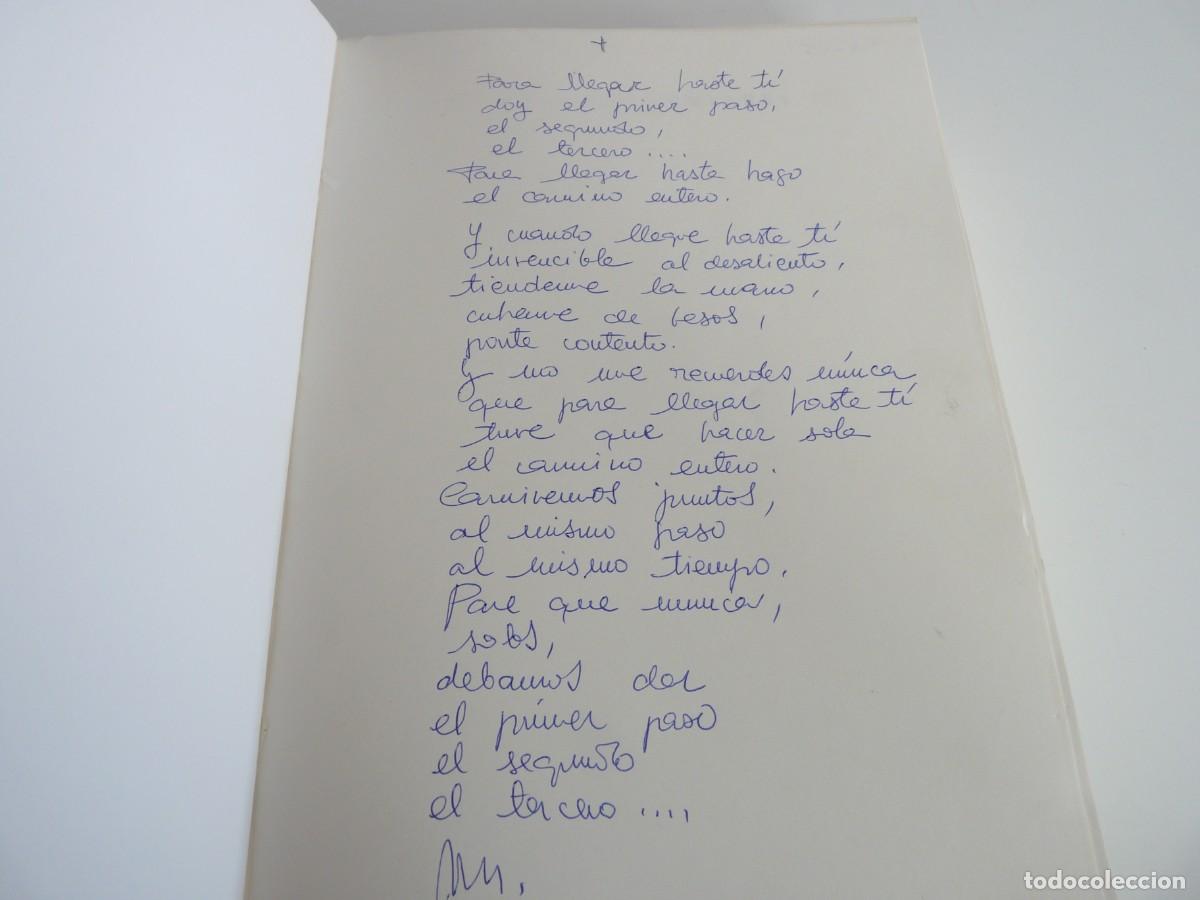 +
Para llegar hasta tí
doy el primer paso,
el segundo,
el tercero....
Para llegar hasta hago
el camino entero.
Y cuando llegue hasta tí
invencible al desaliento,
tiendeme la mano,
cubreme de besos,
ponte contento.
Y no me recuerdes núnca
que para llegar hasta tí
tuve que hacer sola
el camino entero.
Caminemos juntos,
al mismo paso
al mismo tiempo.
Para que nunca,
solos,
debamos dar
el prímer paso
el segundo
el tercero....
todocoleccion